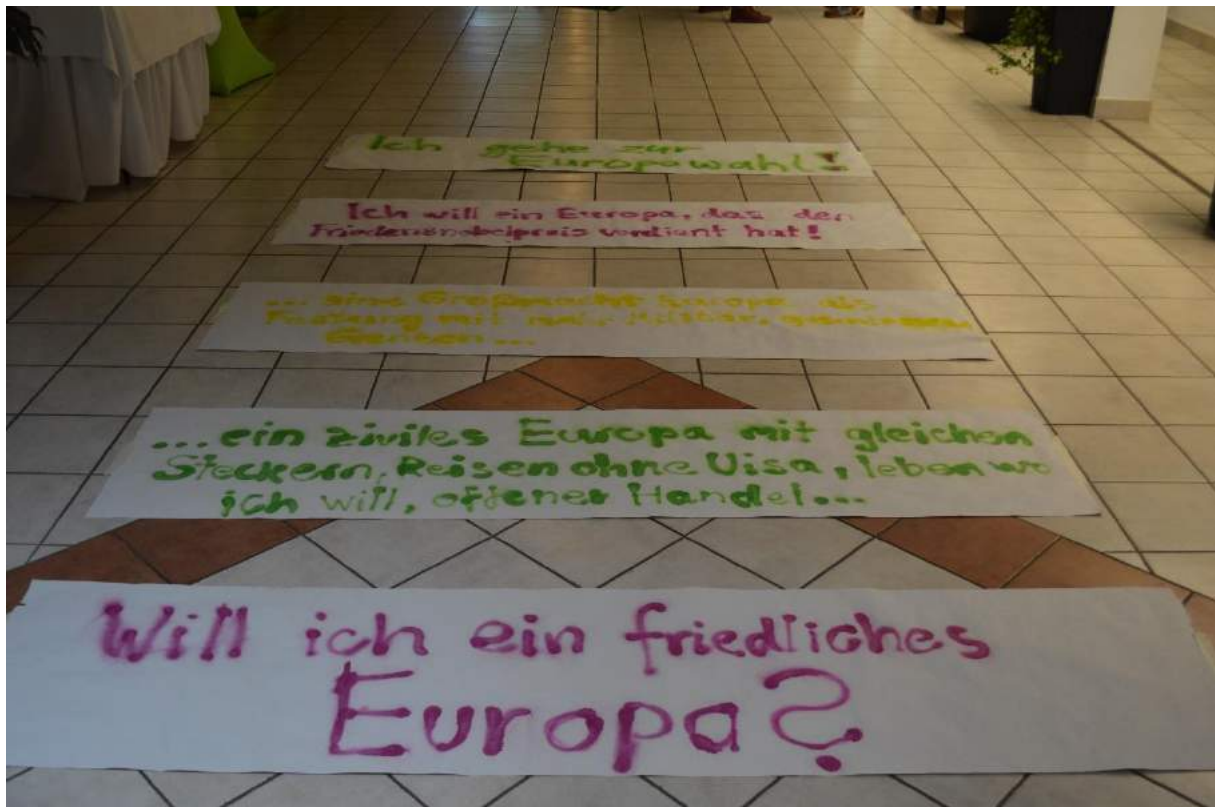 Ich gehe zur
Europawahl!
Ich will ein Europa, das den
Friedensnobelpreis verdient hat!
... eine Großmacht Europa als
Festung mit Militär,
... ein ziviles Europa mit gleichen
Steckern, Reisen ohne Visa, leben wo
ich will, offener Handel...
Will ich ein friedliches
Europa?